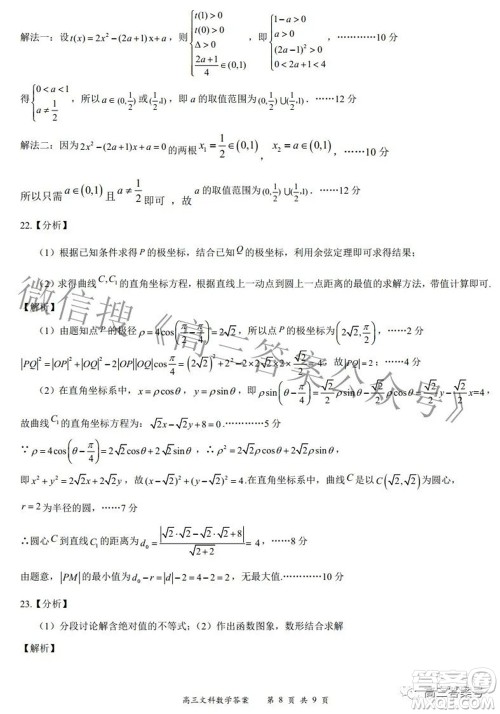 解法一：设 t(x)=2x²-(2a+1)x+a，则 { t(1)>0, t(0)>0, Δ>0, (2a+1)/4∈(0,1) ，即 { 1-a>0, a>0, (2a-1)²>0, 0<2a+1<4 ，…………10 分
得 { 0<a<1, a≠1/2 ，所以 a∈(0,1/2) 或(1/2,1)，即 a 的取值范围为(0,1/2)∪(1/2,1). ……12 分
解法二：因为 2x²-(2a+1)x+a=0 的两根 x₁=1/2∈(0,1)，x₂=a∈(0,1)，……10 分
所以只需 a∈(0,1) 且 a≠1/2 即可，故 a 的取值范围为(0,1/2)∪(1/2,1). ……12 分
22.【分析】
（1）根据已知条件求得 P 的极坐标，结合已知 Q 的极坐标，利用余弦定理即可求得结果；
（2）求得曲线 C,C₁ 的直角坐标方程，根据直线上一动点到圆上一点距离的最值的求解方法，带值计算即可.
【解析】
（1）由题知点 P 的极径 ρ=4cos(π/2-π/4)=2√2，所以点 P 的极坐标为(2√2, π/2)，
|PQ|²=|OP|²+|OQ|²-2|OP||OQ|cos π/4=(2√2)²+2²-2×2√2×2×√2/2=4，故|PQ|=2. ……4 分
（2）在直角坐标系中，x=ρcosθ，y=ρsinθ，即
故曲线 C₁ 的直角坐标方程为：√2x-√2y+8=0. …………5 分
∵ρ=4cos(θ-π/4)=2√2cosθ+2√2sinθ，∴ρ²=2√2ρcosθ+2√2ρsinθ，
即 x²+y²=2√2x+2√2y，故(x-√2)²+(y-√2)²=4，在直角坐标系中，曲线 C 是以 C(√2,√2) 为圆心，
r=2 为半径的圆，……7 分
∴圆心 C 到直线 C₁ 的距离为 d₀=|√2·√2-√2·√2+8|/√(2+2)=4，……8 分
由题意，|PM| 的最小值为 d₀-r=|d|-2=4-2=2，无最大值. …………10 分
23.【分析】
（1）分段讨论解含绝对值的不等式；（2）作出函数图象，数形结合求解
【解析】
高三文科数学答案 第 8 页 共 9 页
微信搜《高三答案公众号》
高三答案号